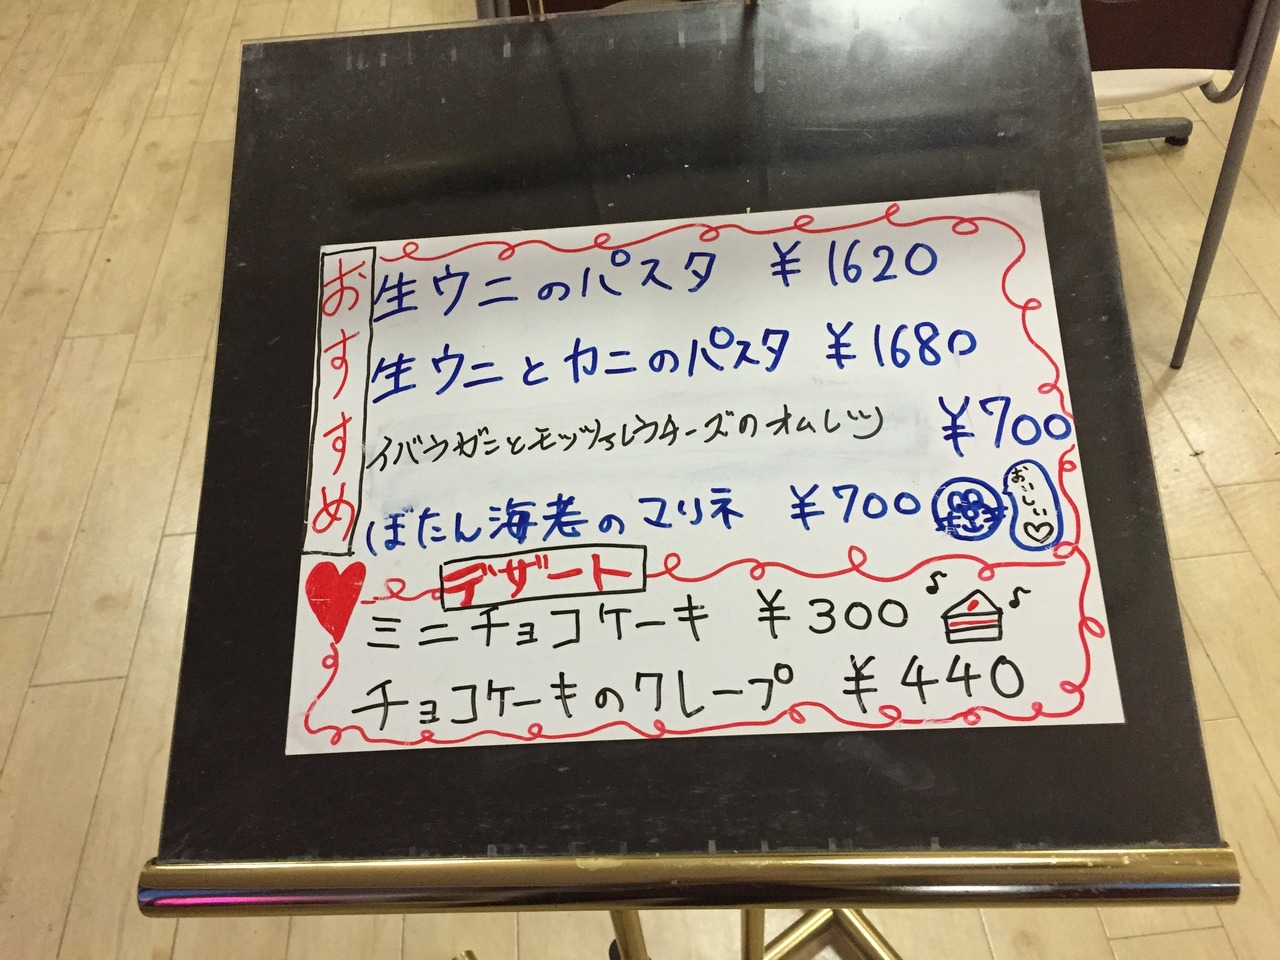 おすすめ
生ウニのパスタ ¥1620
生ウニとカニのパスタ ¥1680
イバラガニとモッツァレラチーズのオムレツ ¥700
ぼたん海老のマリネ ¥700
おいしい♡
デザート
ミニチョコケーキ ¥300
チョコケーキのクレープ ¥440